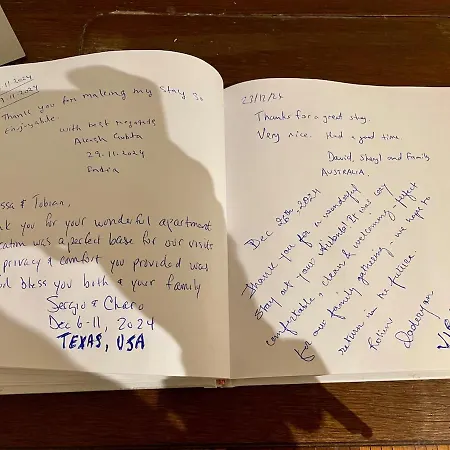 11.2024
11.2024
Thank you for making my stay so
enjoyable.
with best regards,
Akash Gupta
29.11.2024
India
ssa & Tobian,
nk you for your wonderful apartment
cation was a perfect base for our visits
privacy & comfort you provided was
bless you both & your family
Sergio & Charo
Dec 6-11, 2024
TEXAS, USA
23/12/24
Thanks for a great stay.
Very nice. Had a good time.
David, Sheryl and family
AUSTRALIA.
Dec 26th, 2024
Thank you for a wonderful
stay at your It was very
comfortable, clean & welcoming, perfect
for our family gathering. We hope to
return in the future